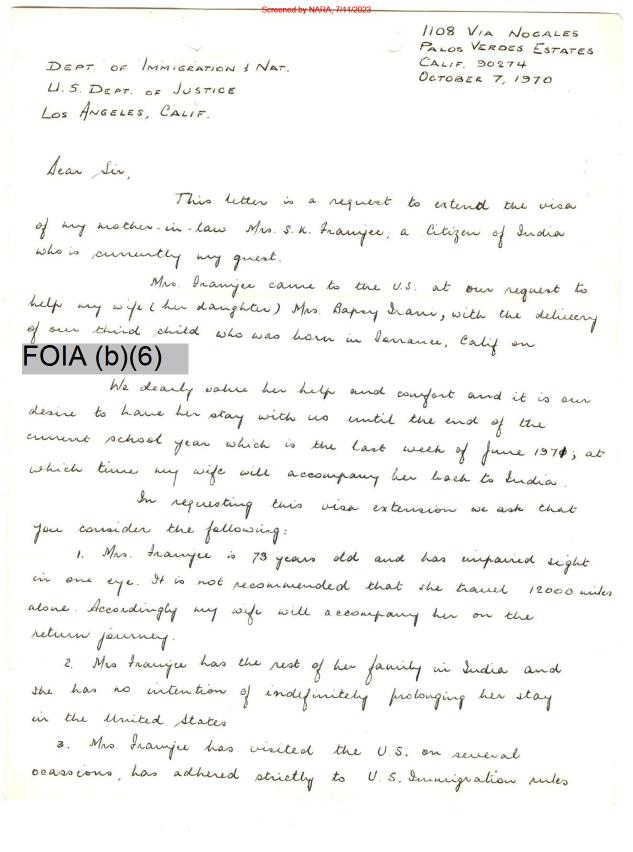 Screened by NARA, 7/11/2023
1108 VIA NOGALES
PALOS VERDES ESTATES
CALIF. 90274
OCTOBER 7, 1970
DEPT. OF IMMIGRATION & NAT.
U.S. DEPT. OF JUSTICE
LOS ANGELES, CALIF.
Dear Sir,
This letter is a request to extend the visa
of my mother-in-law Mrs. S.K. Framjee, a Citizen of India
who is currently my guest.
Mrs. Framjee came to the U.S. at our request to
help my wife (her daughter) Mrs. Bapsy Irani, with the delivery
of our third child who was born in Torrance, Calif on
FOIA (b)(6)
We dearly value her help and comfort and it is our
desire to have her stay with us until the end of the
current school year which is the last week of June 1971; at
which time my wife will accompany her back to India.
In requesting this visa extension we ask that
you consider the following:
1. Mrs. Framjee is 73 years old and has impaired sight
in one eye. It is not recommended that she travel 12000 miles
alone. Accordingly my wife will accompany her on the
return journey.
2. Mrs Framjee has the rest of her family in India and
she has no intention of indefinitely prolonging her stay
in the United States
3. Mrs. Framjee has visited the U.S. on several
ocassions, has adhered strictly to U.S. Immigration rules